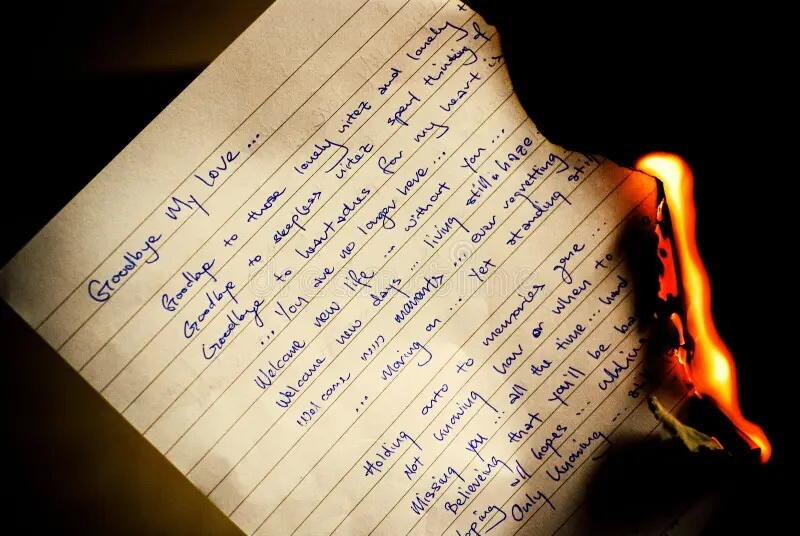 Goodbye My Love ...
Goodbye to those lonely nitez and lonely
Goodbye to sleepless nitez spend thinking of
Goodbye to heartaches for my heart is
... You are no longer here ...
Welcome new life ... without you ...
Welcome new days ... living still in haze
Welcome new moments ... ever regretting
... Moving on ... Yet standing still
Holding onto to memories gone ...
Not knowing how or when to
Missing you ... all the time ... hard
Believeing that you'll be ba
oping all hopes ...
Only knowing ...
dreamstime.com